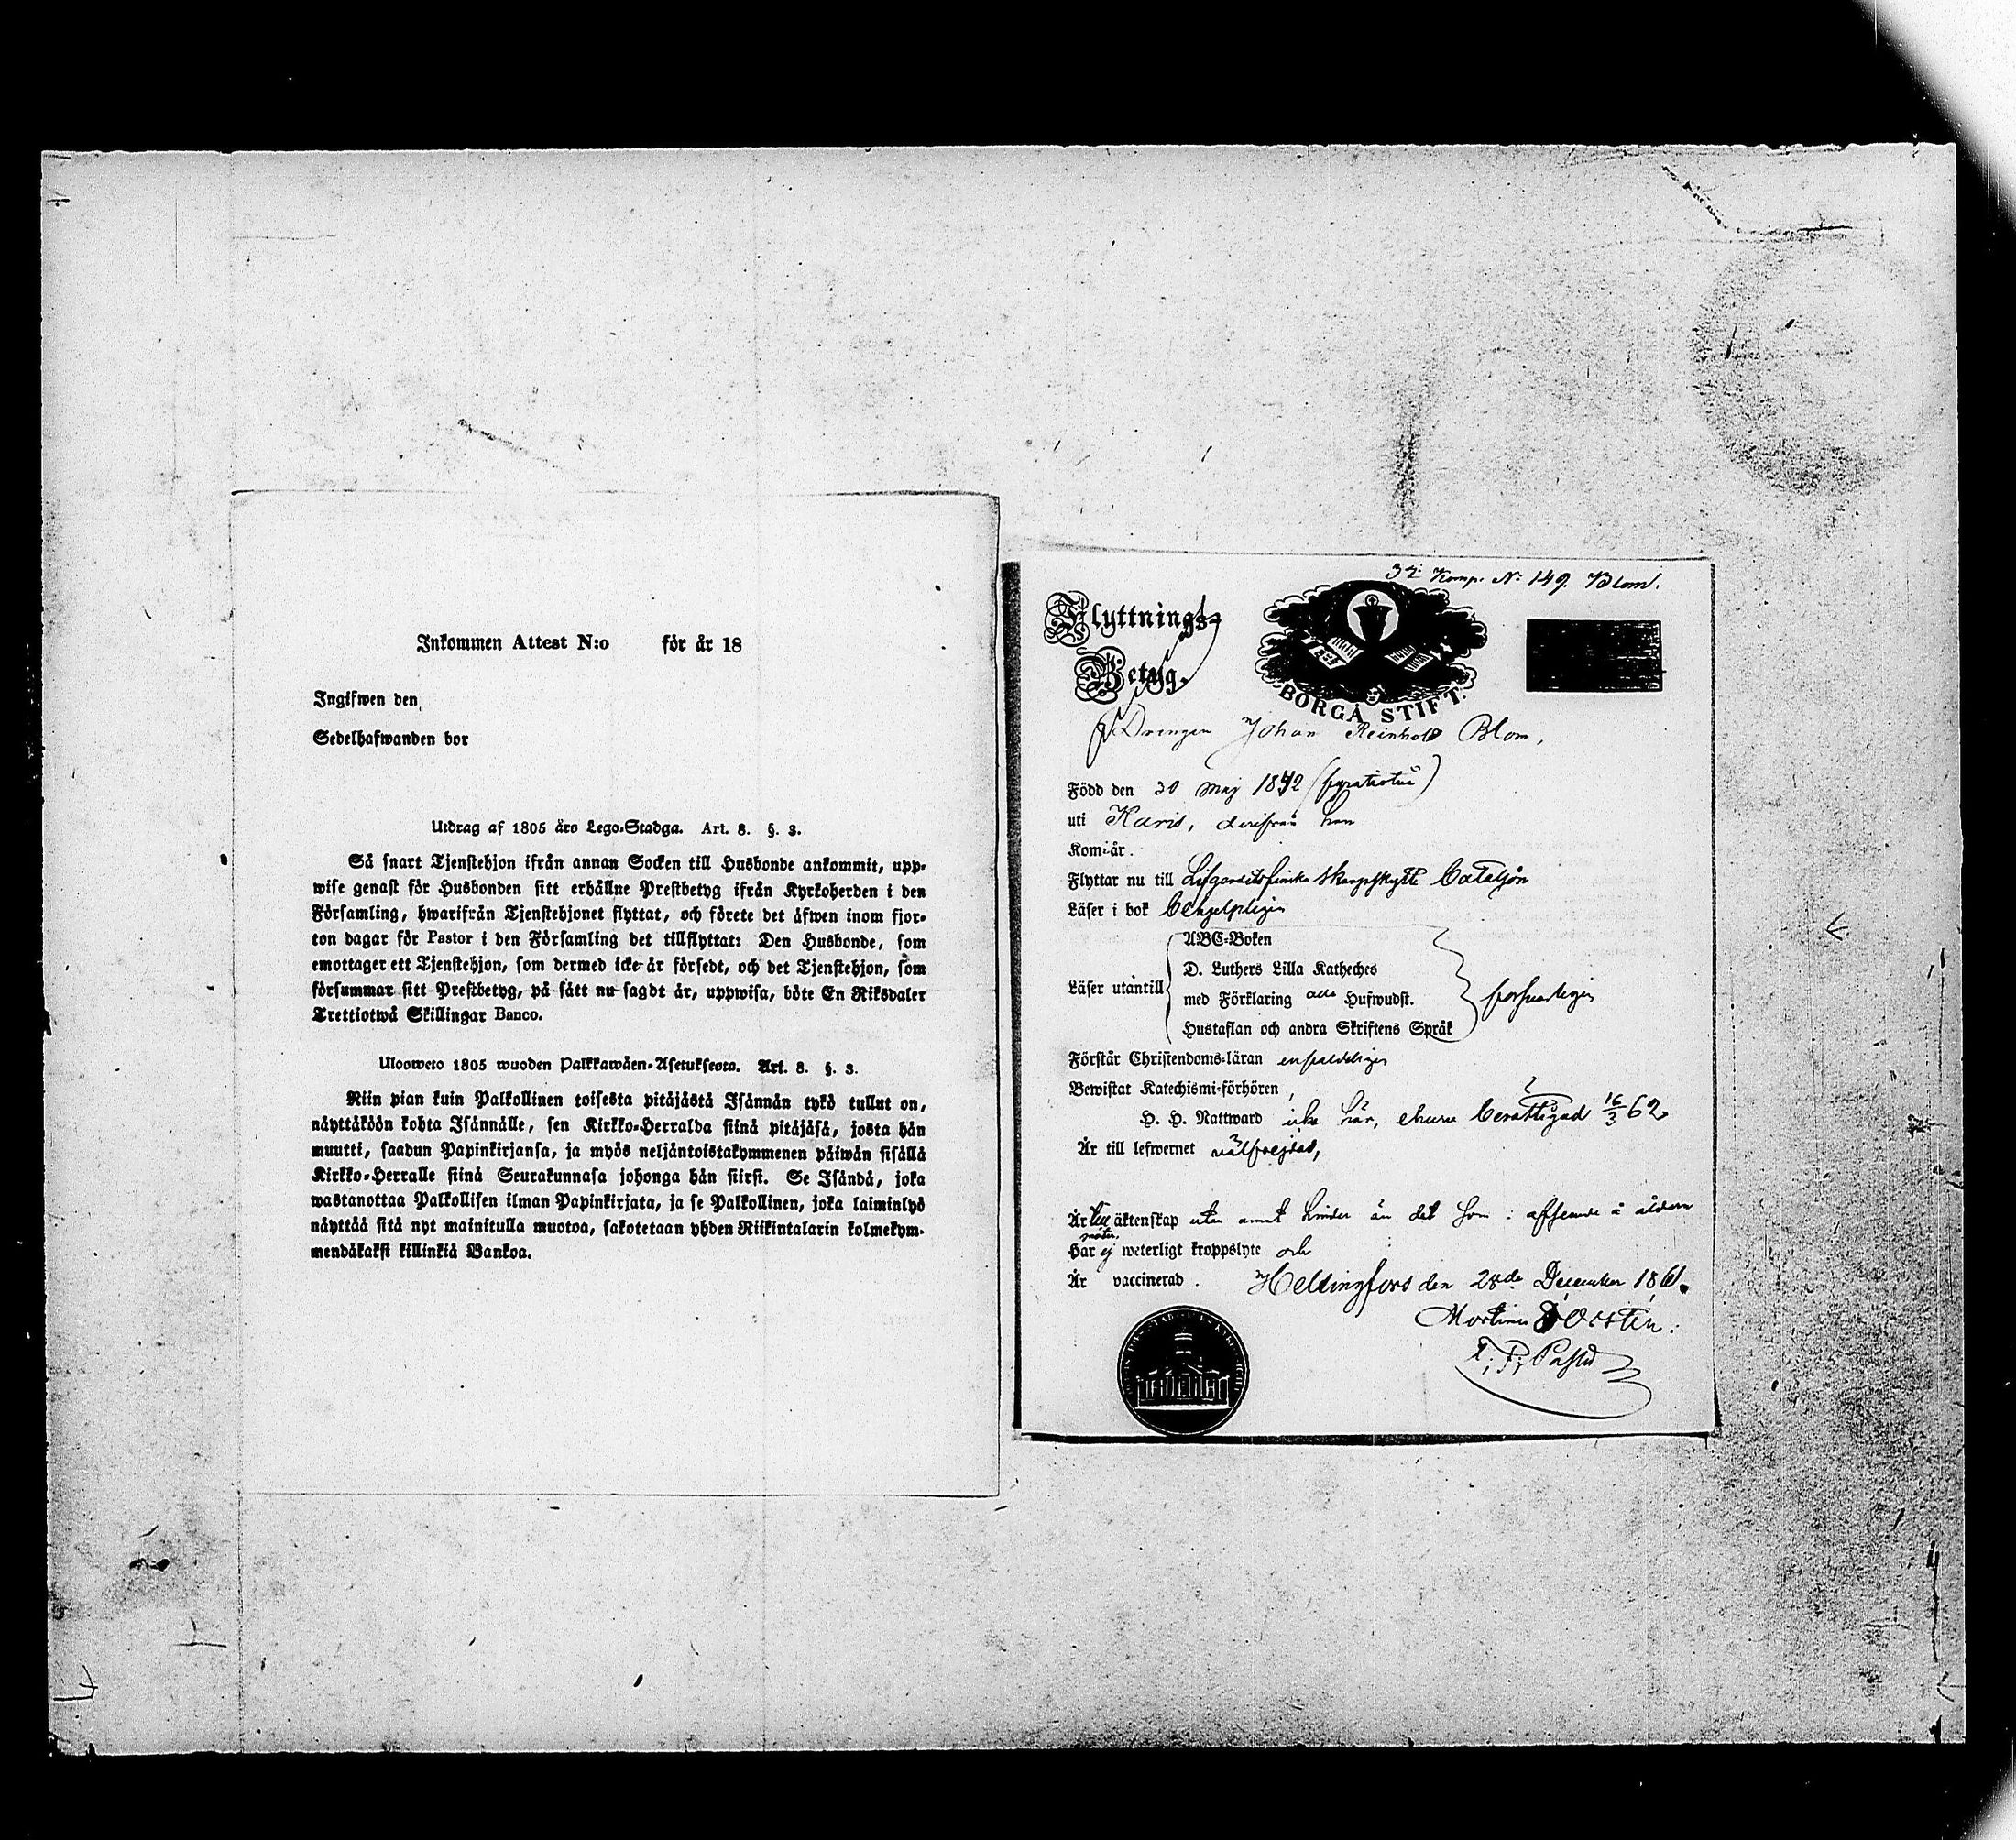 Inkommen Attest N:o för år 18
Ingifwen den
Sedelhafwanden bor
Utdrag af 1805 års Lego-Stadga. Art. 8. §. 3.
Så snart Tjenstehjon ifrån annan Socken till Husbonde ankommit, upp-
wise genast för Husbonden sitt erhållne Prestbetyg ifrån Kyrkoherden i den
Församling, hwarifrån Tjenstehjonet flyttat, och förete det äfwen inom fjor-
ton dagar för Pastor i den Församling det tillflyttat: Den Husbonde, som
emottager ett Tjenstehjon, som dermed icke är försedt, och det Tjenstehjon, som
försummar sitt Prestbetyg, på sätt nu sagdt är, uppwisa, böte En Riksdaler
Trettiotwå Skillingar Banco.
Ulosweto 1805 wuoden Palkkawäen-Asetuksesta. Art. 8. §. 3.
Niin pian kuin Palkollinen toisesta pitäjästä Isännän tykö tullut on,
näyttäköön kohta Isännälle, sen Kirkko-Herralda siinä pitäjäsä, josta hän
muutti, saadun Papinkirjansa, ja myös neljäntoistakymmenen päiwän sisällä
Kirkko-Herralle siinä Seurakunnasa johonga hän siirsi. Se Isändä, joka
wastanottaa Palkollisen ilman Papinkirjata, ja se Palkollinen, joka laiminlyö
näyttää sitä nyt mainitulla muotoa, sakotetaan yhden Riikintalarin kolmekym-
mendäkaksi killinkiä Bankoa.
3:e Komp. N: 149. Blom.
Flyttnings-
Betyg.
BORGÅ STIFT.
Drengen Johan Reinhold Blom,
Född den 30 Maj 1842 (fyratiotvå)
uti Karis, derifrån han
Kom: år.
Flyttar nu till Lifgardets finska Skarpskytte Bataljon
Läser i bok behjelpligen
ABC-Boken
D. Luthers Lilla Katheches
Läser utantill
med Förklaring alla Hufwudst. försvarligen
Hustaflan och andra Skriftens Språk
Förstår Christendoms-läran enfaldeligen
Bewistat Katechismi-förhören,
H. H. Nattward icke här, ehuru berättigad 16/3 62
Är till lefwernet välfrejdad,
Är äktenskap utan annat hinder än det som: afseende å åldern
Har ej weterligt kroppslyte och
Är vaccinerad. Helsingfors den 28de December 1861.
T. P. Pastor